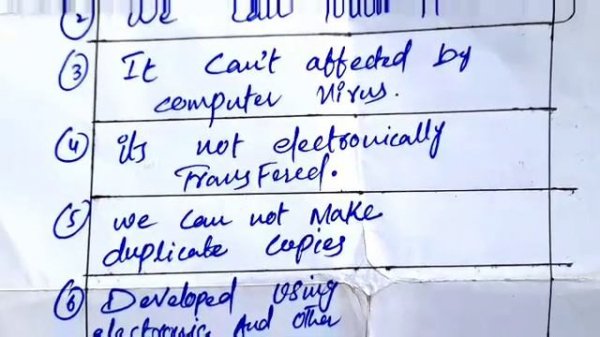 ② we can touch it
③ It can't affected by
computer virus.
④ its not electronically
Transfered.
⑤ we can not Make
duplicate copies
⑥ Developed using
electronic And other